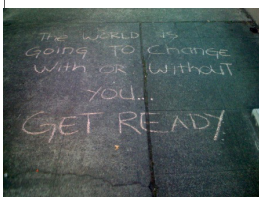 THE WORLD IS
GOING TO CHANGE
WITH OR WITHOUT
YOU...
GET READY